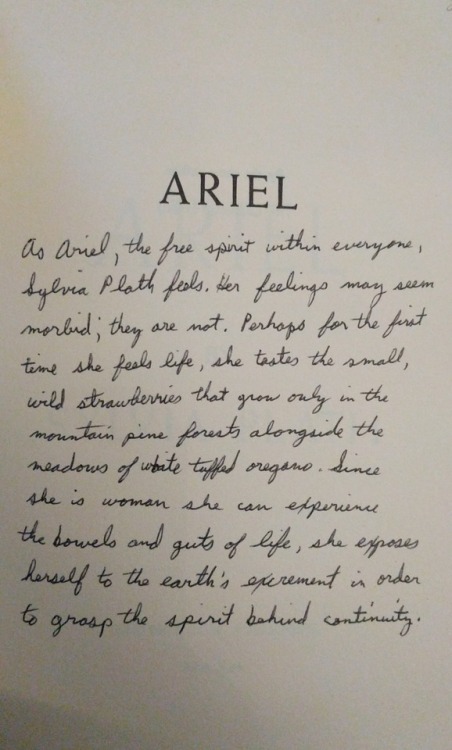 ARIEL
As Ariel, the free spirit within everyone,
Sylvia Plath feels. Her feelings may seem
morbid; they are not. Perhaps for the first
time she feels life, she tastes the small,
wild strawberries that grow only in the
mountain pine forests alongside the
meadows of white tuffed oregano. Since
she is woman she can experience
the bowels and guts of life, she exposes
herself to the earth's excrement in order
to grasp the spirit behind continuity.